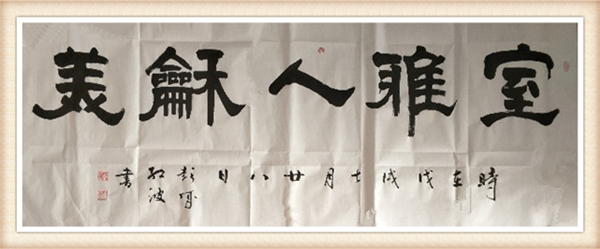 室雅人龢美
時在戊戌七月廿八日彭紅波書